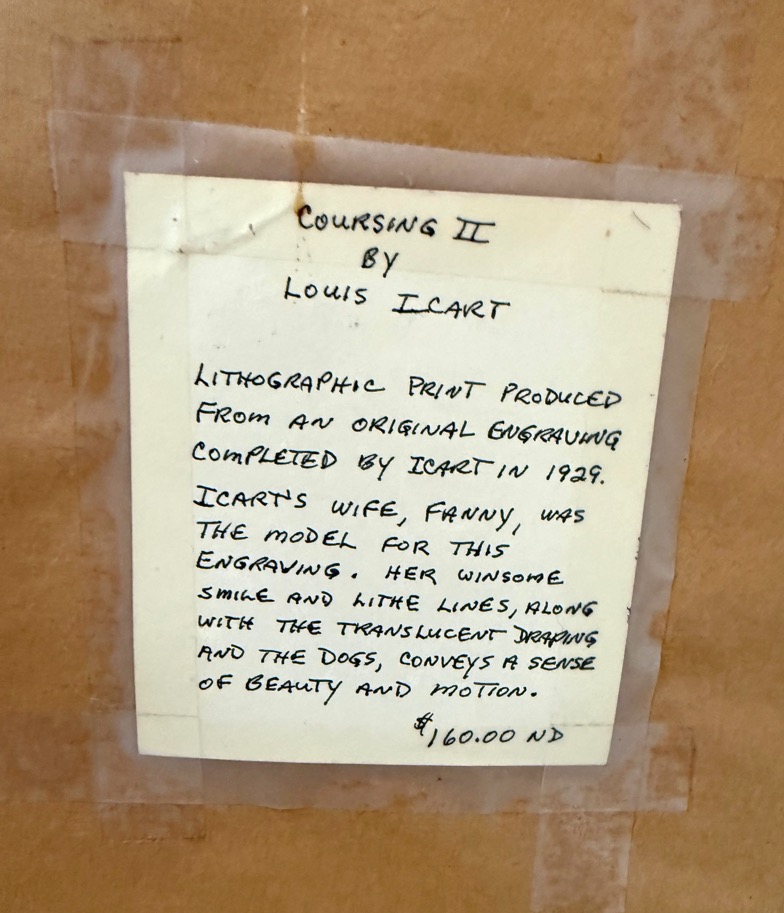 COURSING II
BY
LOUIS ICART
LITHOGRAPHIC PRINT PRODUCED
FROM AN ORIGINAL ENGRAVING
COMPLETED BY ICART IN 1929.
ICART'S WIFE, FANNY, WAS
THE MODEL FOR THIS
ENGRAVING. HER WINSOME
SMILE AND LITHE LINES, ALONG
WITH THE TRANSLUCENT DRAPING
AND THE DOGS, CONVEYS A SENSE
OF BEAUTY AND MOTION.
$160.00 ND